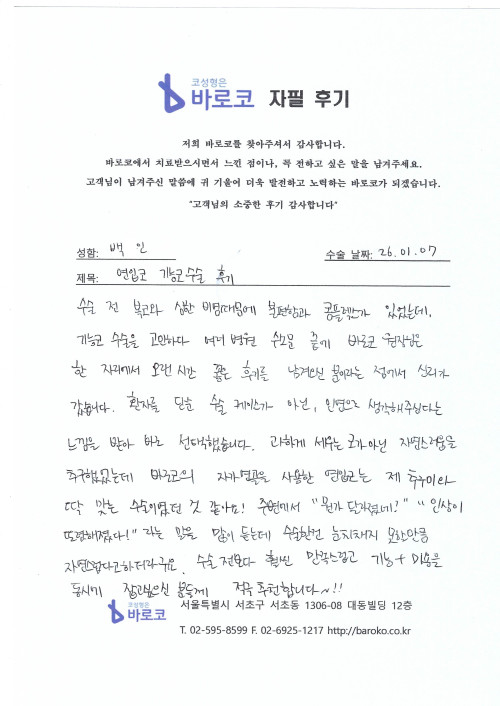 코성형은
바로코 자필 후기
저희 바로코를 찾아주셔서 감사합니다.
바로코에서 치료받으시면서 느낀 점이나, 꼭 전하고 싶은 말을 남겨주세요.
고객님이 남겨주신 말씀에 귀 기울여 더욱 발전하고 노력하는 바로코가 되겠습니다.
"고객님의 소중한 후기 감사합니다"
성함: 백 인 수술 날짜: 26.01.07
제목: 연입코 기능코수술 후기
수술 전 복코와 심한 비염때문에 불편함과 콤플렉스가 있었는데,
기능코 수술을 고민하다 여러 병원 수소문 끝에 바로코 원장님은
한 자리에서 오랜시간 좋은 후기를 남겨오신 분이라는 점에서 신뢰가
갔습니다. 환자를 단순 수술 케이스가 아닌, 인연으로 생각해주신다는
느낌을 받아 바로 선택했습니다. 과하게 세우는 코가 아닌 자연스러움을
추구했었는데 바로코의 자가연골을 사용한 연입코는 제 추구미와
딱 맞는 수술이였던 것 같아요! 주변에서 "뭔가 달라졌네?" "인상이
또렷해졌다!" 라는 말을 많이 듣는데 수술한건 눈치채지 못할만큼
자연스럽다고하더라구요. 수술 전보다 훨씬 만족스럽고 기능+미용을
동시에 잡고싶으신 분들께 적극 추천합니다~!!
코성형은
바로코 서울특별시 서초구 서초동 1306-08 대동빌딩 12층
T. 02-595-8599 F. 02-6925-1217 http://baroko.co.kr